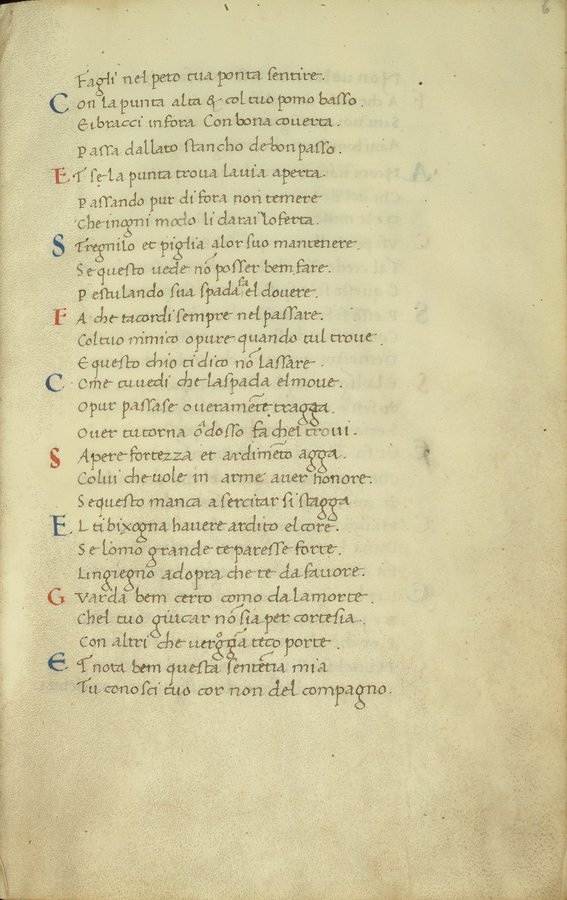 6
Fagli nel peto tua ponta sentire.
Con la punta alta & col tuo pomo basso.
Ei bracci in fora Con bona coverta.
Passa dallato stancho de bon passo.
Et se la punta trova la via aperta.
Passando pur di fora non temere
Che in ogni modo li darai l'oferta.
Stregnilo et piglia alor suo mantenere.
Se questo vede nō posser bem fare.
Pestulando sua spada fa el dovere.
Fa che tacordi sempre nel passare.
Col tuo nimico o pure quando tul trove.
E questo chio ti dico nō lassare.
Come tu vedi che la spada el move.
Opur passase overamēte tragga.
Over tu torna o' dosso fa chel trovi.
Sapere fortezza et ardimēto agga.
Colui che vole in arme aver honore.
Se questo manca a sercitar si stagga
El ti bixogna havere ardito el core.
Se lomo grande te paresse forte.
Lingiegno adopra che te da favore.
Guarda bem certo como da la morte.
Chel tuo giucar nō sia per cortesia.
Con altri che vergogna teco porte.
Et nota bem questa sentētia mia
Tu conosci tuo cor non del compagno.